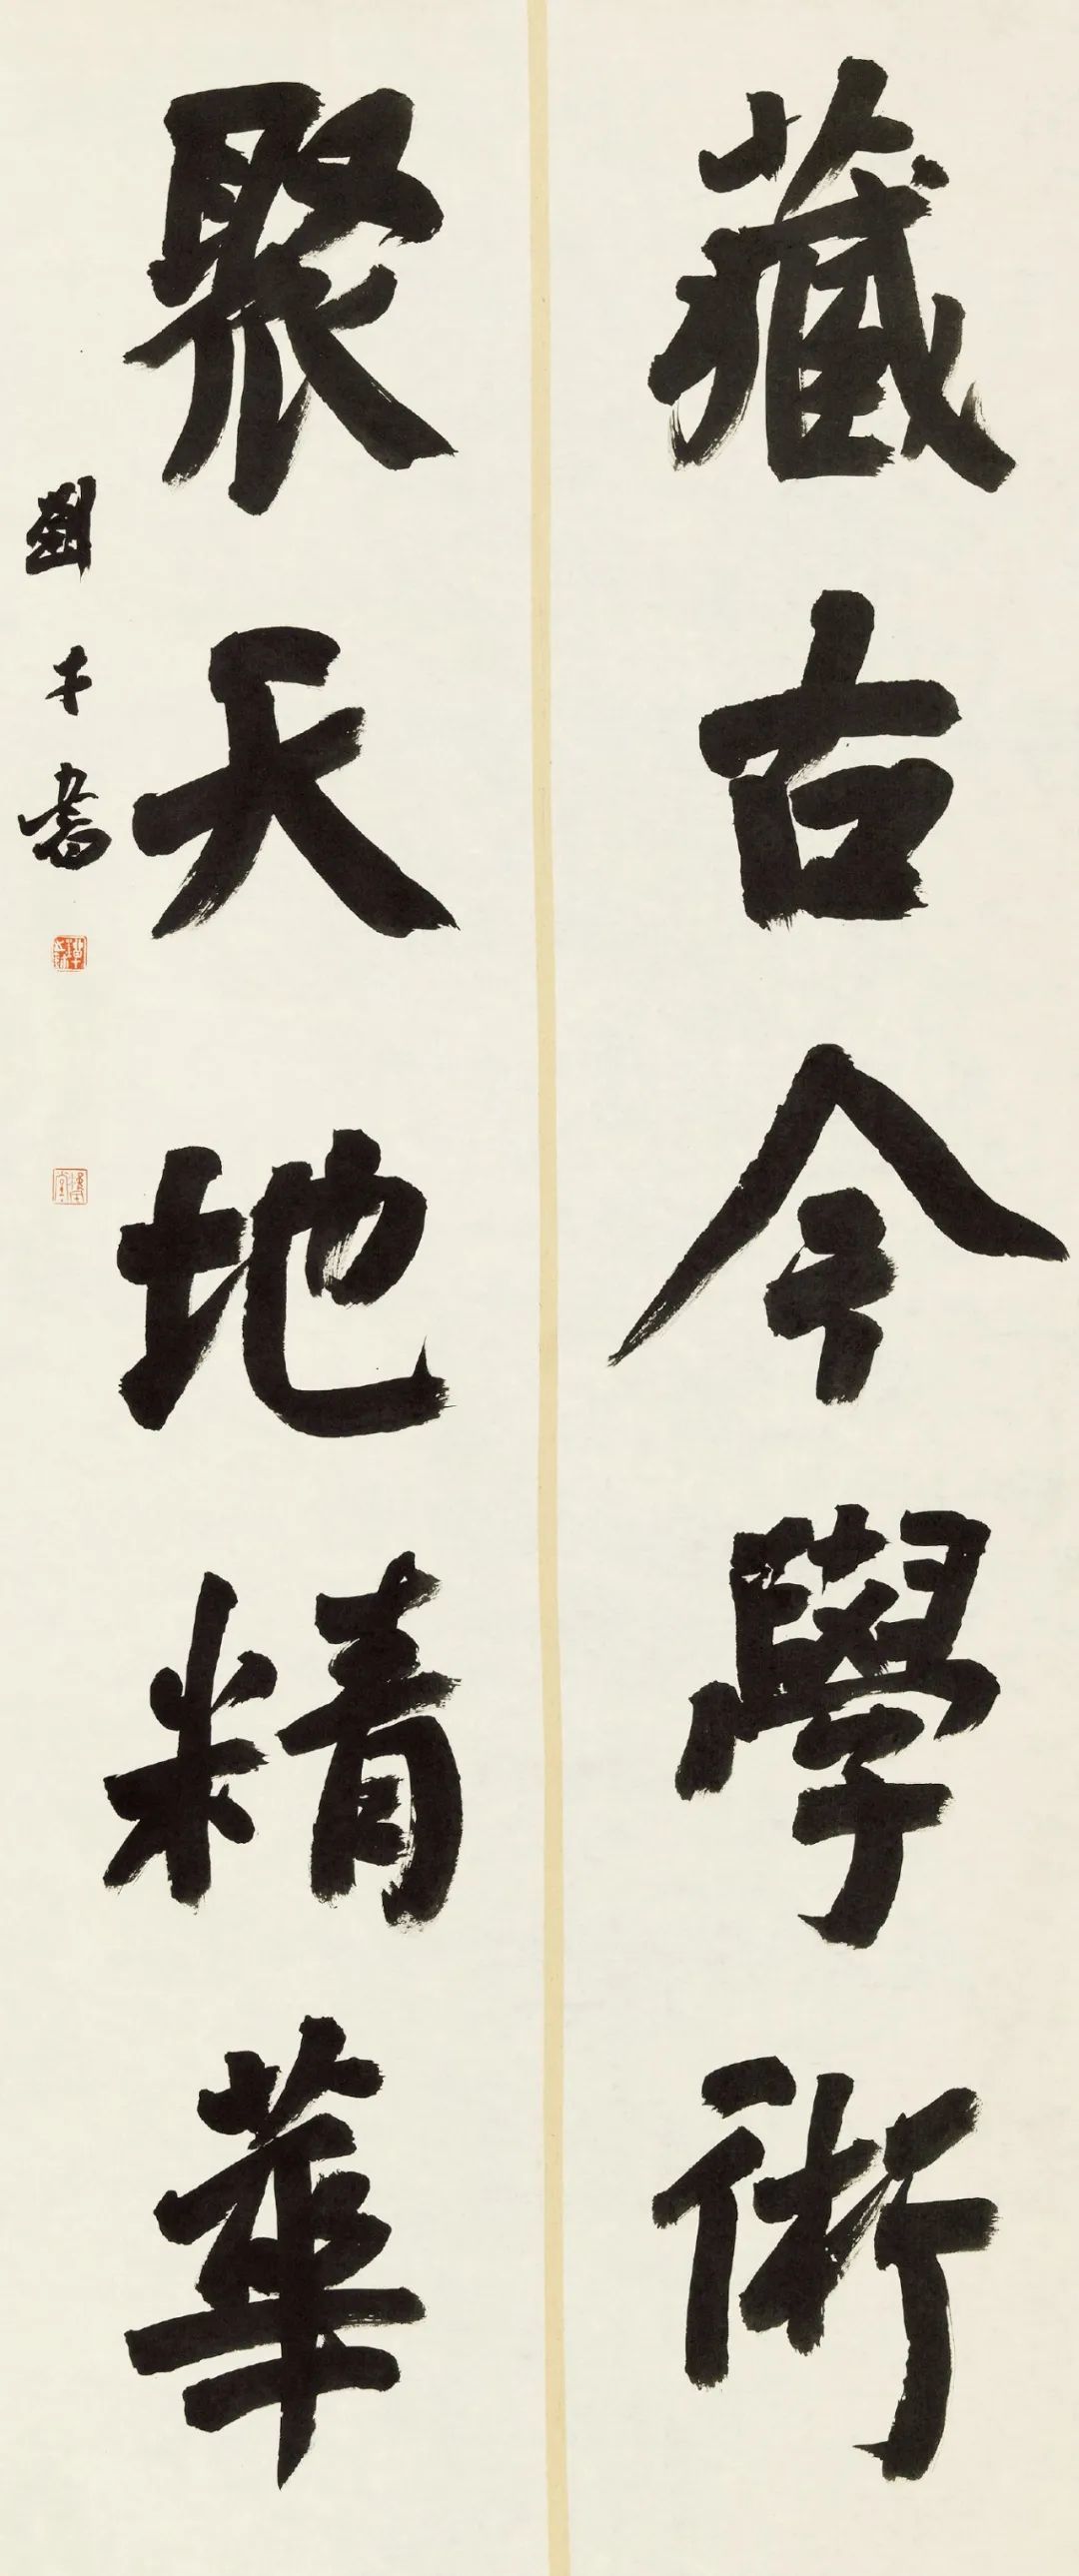 藏古今學術
聚天地精華
劉才書